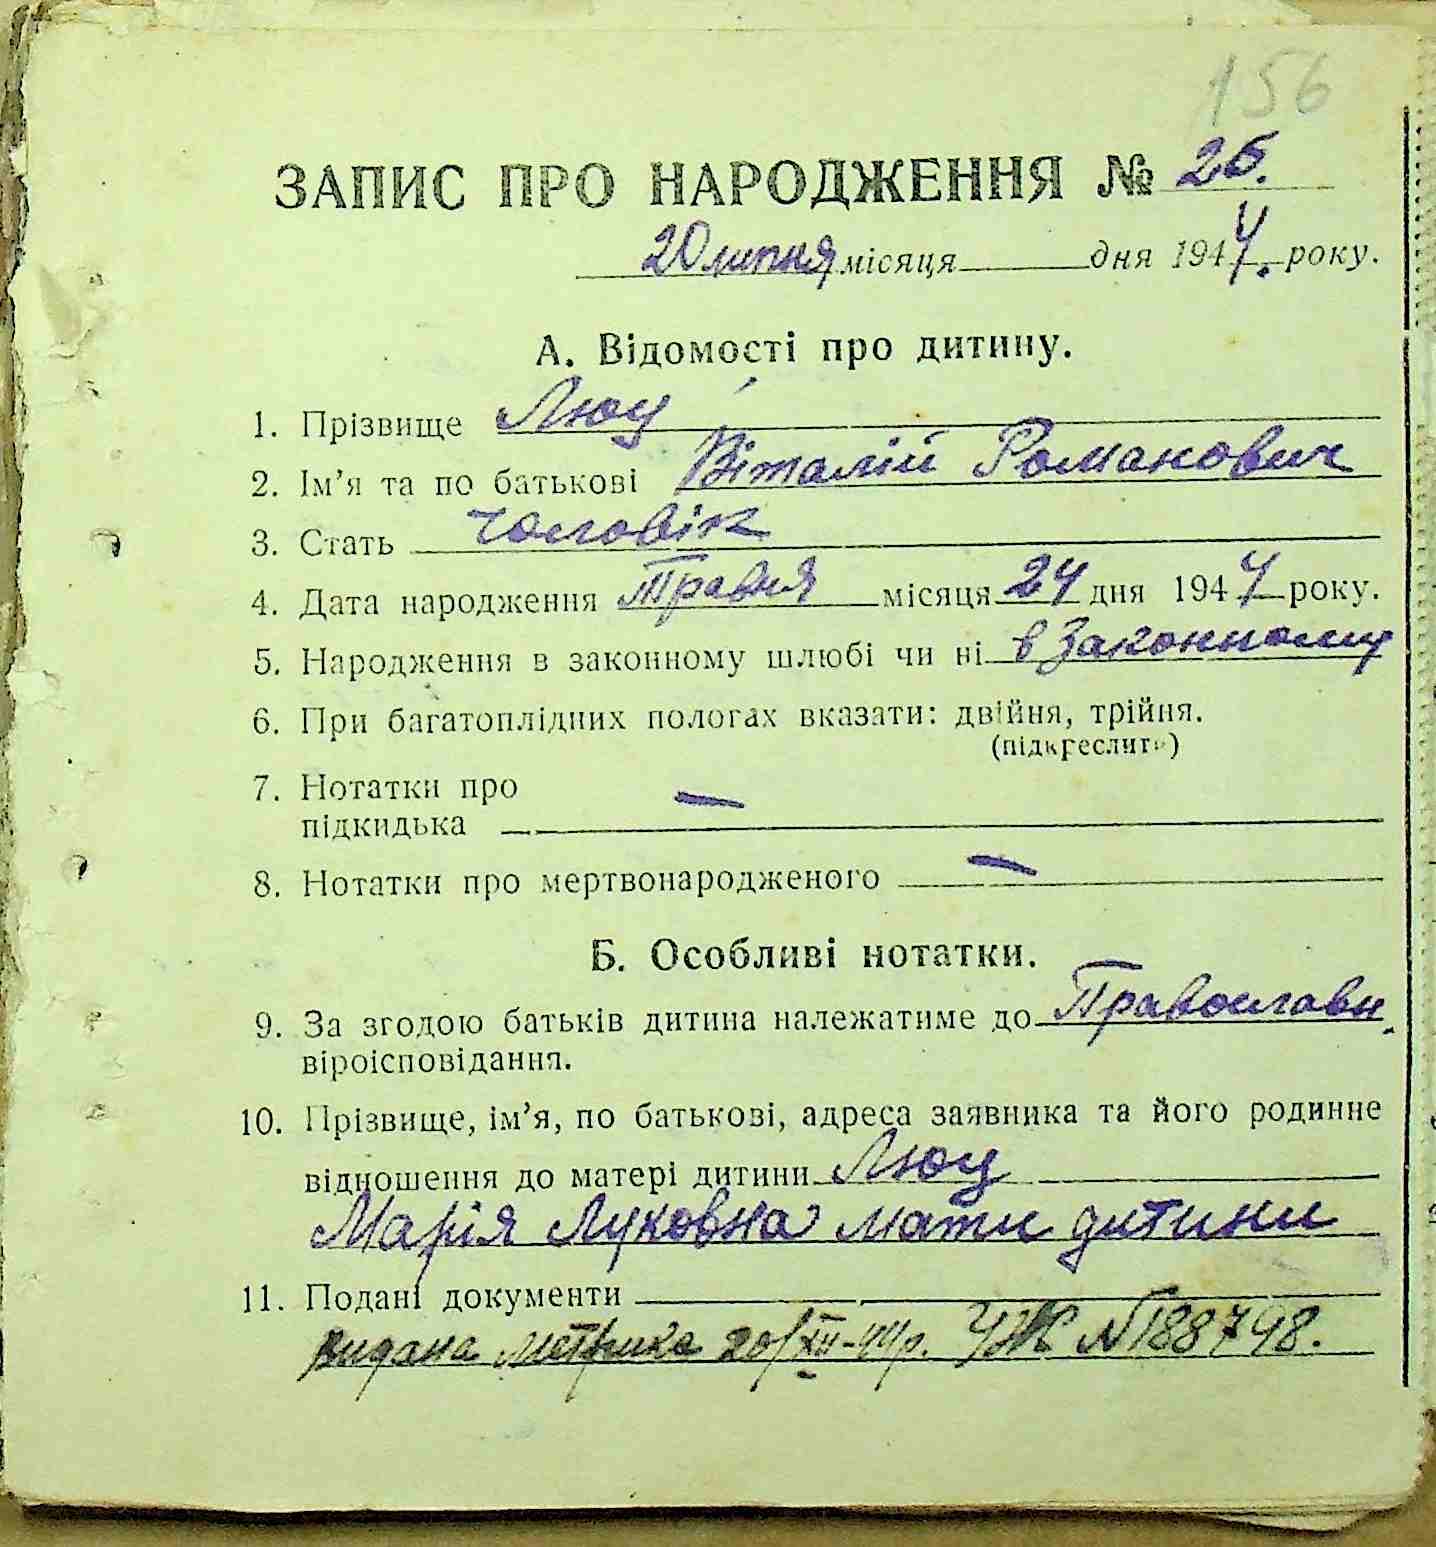 156
ЗАПИС ПРО НАРОДЖЕННЯ № 26.
20 липня місяця дня 1944. року.
А. Відомості про дитину.
1. Прізвище Люц
2. Ім'я та по батькові Віталій Романович
3. Стать чоловік
4. Дата народження Травня місяця 24 дня 1944 року.
5. Народження в законному шлюбі чи ні в Законному
6. При багатоплідних пологах вказати: двійня, трійня.
(підкреслити)
7. Нотатки про —
підкидька
8. Нотатки про мертвонародженого —
Б. Особливі нотатки.
9. За згодою батьків дитина належатиме до Православн.
віроісповідання.
10. Прізвище, ім'я, по батькові, адреса заявника та його родинне
відношення до матері дитини Люц
Марія Луковна мати дитини
11. Подані документи
видана метрика 20/XII-44р. УЖ N188798.